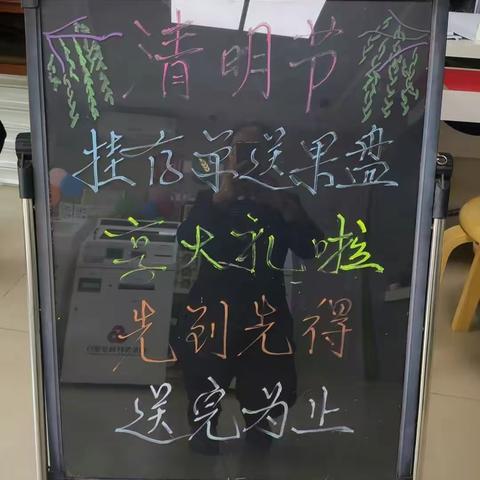 清明节
挂存单送果盘
享大礼啦
先到先得
送完为止